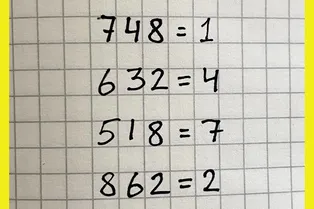 748 = 1
632 = 4
518 = 7
862 = 2